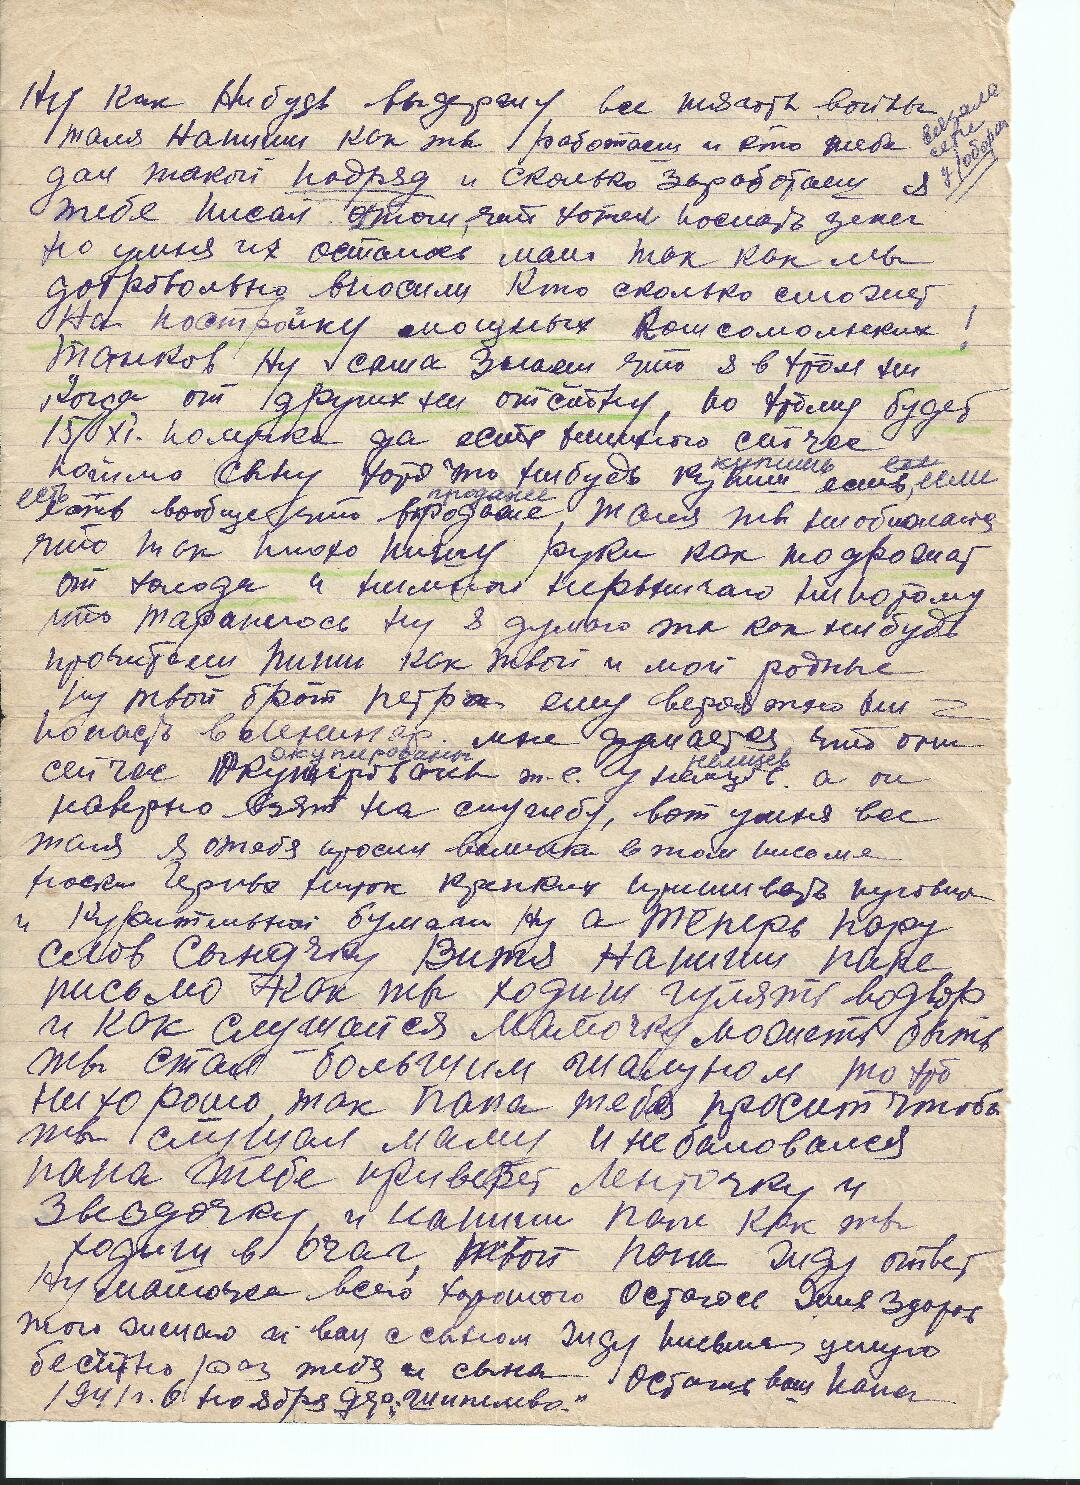 Ну как Нибудь выдержу все тягость войны
Таля Напиши как ты работаеш и кто тебе
дал такой подряд и сколько Заработаеш я
тебе писал отом, что хотел послать денег
но уменя их осталось мало так как мы
добровольно вносили Кто сколько сможет
На постройку мощных Комсомольских !
Танков Ну саша Знаеш что я в этом ни
когда от других ни отстану, по этому будет
15/XI. получка да есть немного сейчас
пошлю сыну хотя что нибудь купиш если
купишь если
есть вообще что впродаже, Таля ты ниобижайся
есть продаже
что так плохо пишу руки как то дрожат
от холода и нимного нирвничаю нипотому
что таранюсь Ну я думаю ты как нибудь
прочитаеш пиши как твои и мои родные
Ну твой брат петр ему вероятно ни
попасть в Ленингр. мне думается что они
сейчас Окупированы т.е. у немцев. а он
окупированы немцев
наверно взят на службу, вот уменя все
Таля я отебя просил в этом письме
носки Черных ниток крепких пришивать пуговицы
и Курительной бумаги Ну а Теперь пару
слов Сыночку Витя Напиши папе
письмо Как ты ходиш гулять водвор
и как слушаеся Мамочку может быть
ты стал большим шалуном то это
нихорошо, так папа тебя просит чтобы
ты слушал маму и небаловался
папа тебе привезет Ленточку и
Звездочку, и напиши папе как ты
ходиш в Очаг, твой папа жду ответ
Ну мамочка всего хорошего Остаюсь Здоров
того желаю и вам с сыном жду письма целую
бесчетно раз тебя и сына Остаюсь ваш папа
1941 г. 6 ноября